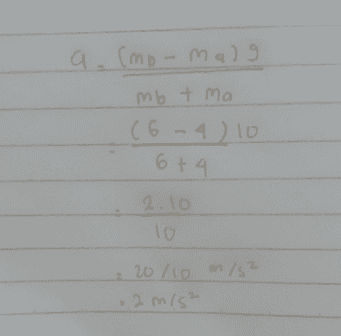 a = (mb - ma) g
mb + ma
= (6 - 4) 10
6 + 4
= 2.10
10
= 20/10 m/s²
= 2 m/s²